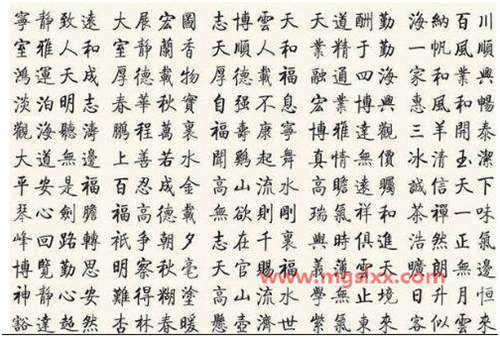 寧靜致遠 大展宏圖 志博雲天 天道酬勤 海納百川
室雅人和 室靜蘭香 順人和 業精于勤 一帆風順
鴻運天成 厚德載物 厚德載福 融通四海 家業興
淡泊明志 春華秋實 自强不息 宏業博 惠風和暢
觀海聽濤 鵬程萬裏 福壽康寧 博雅達觀 三羊開泰
大道無邊 上善若水 聞鷄起舞 真情無價 冰清玉潔
平安是福 百忍成金 高山流水 高瞻遠矚 誠信天下
琴心劍膽 福高德載 無欲則剛 瑞氣祥和 茶禪一味
峰回路轉 祇争朝夕 志在千裏 與時俱進 浩然正氣
博覽勤思 明察秋毫 天官賜福 義薄雲天 無邊
神靜心安 難得糊塗 高山流水 學無止境 日升月恒
豁達超然 杏林春暖 懸壺濟世 紫氣東來 客似雲來
www.mgslxx.com